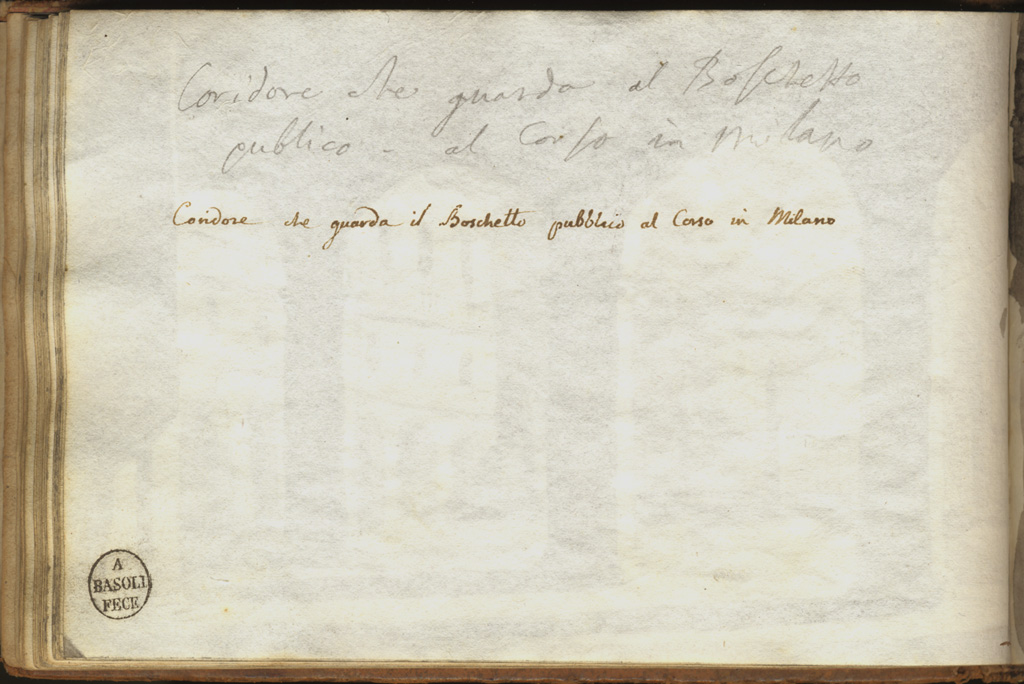 Coridore che guarda al Boschetto
publico - al Corso in Milano
Coridore che guarda il Boschetto pubblico al Corso in Milano
A
BASOLI
FECE